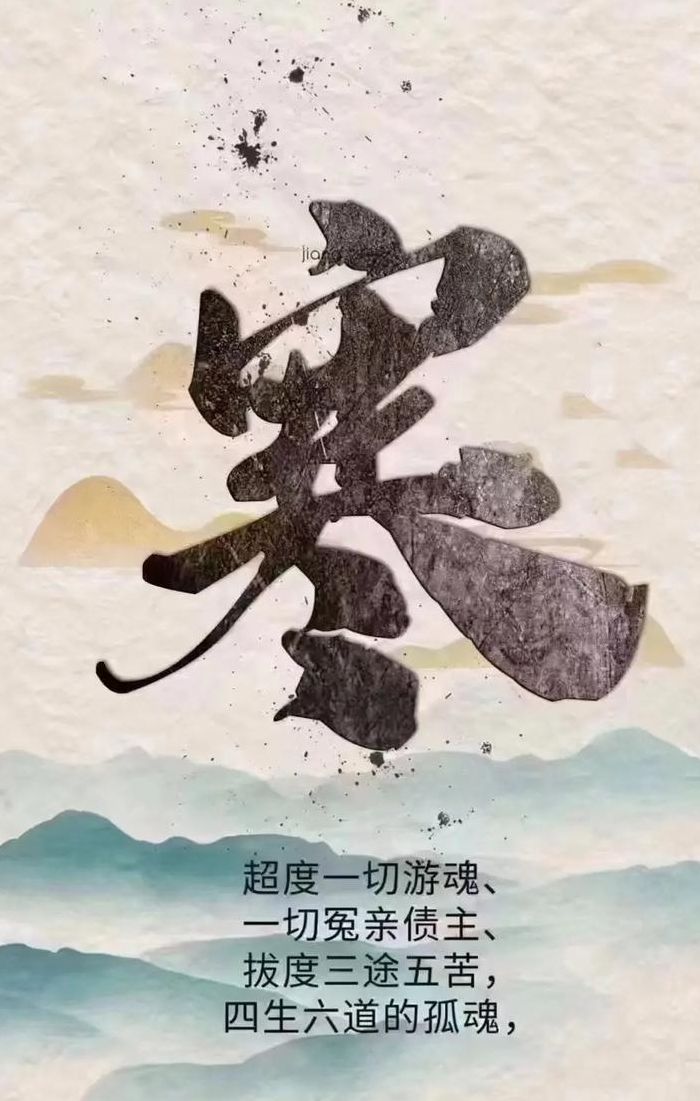 寒
超度一切游魂、
一切冤亲债主、
拔度三途五苦，
四生六道的孤魂，